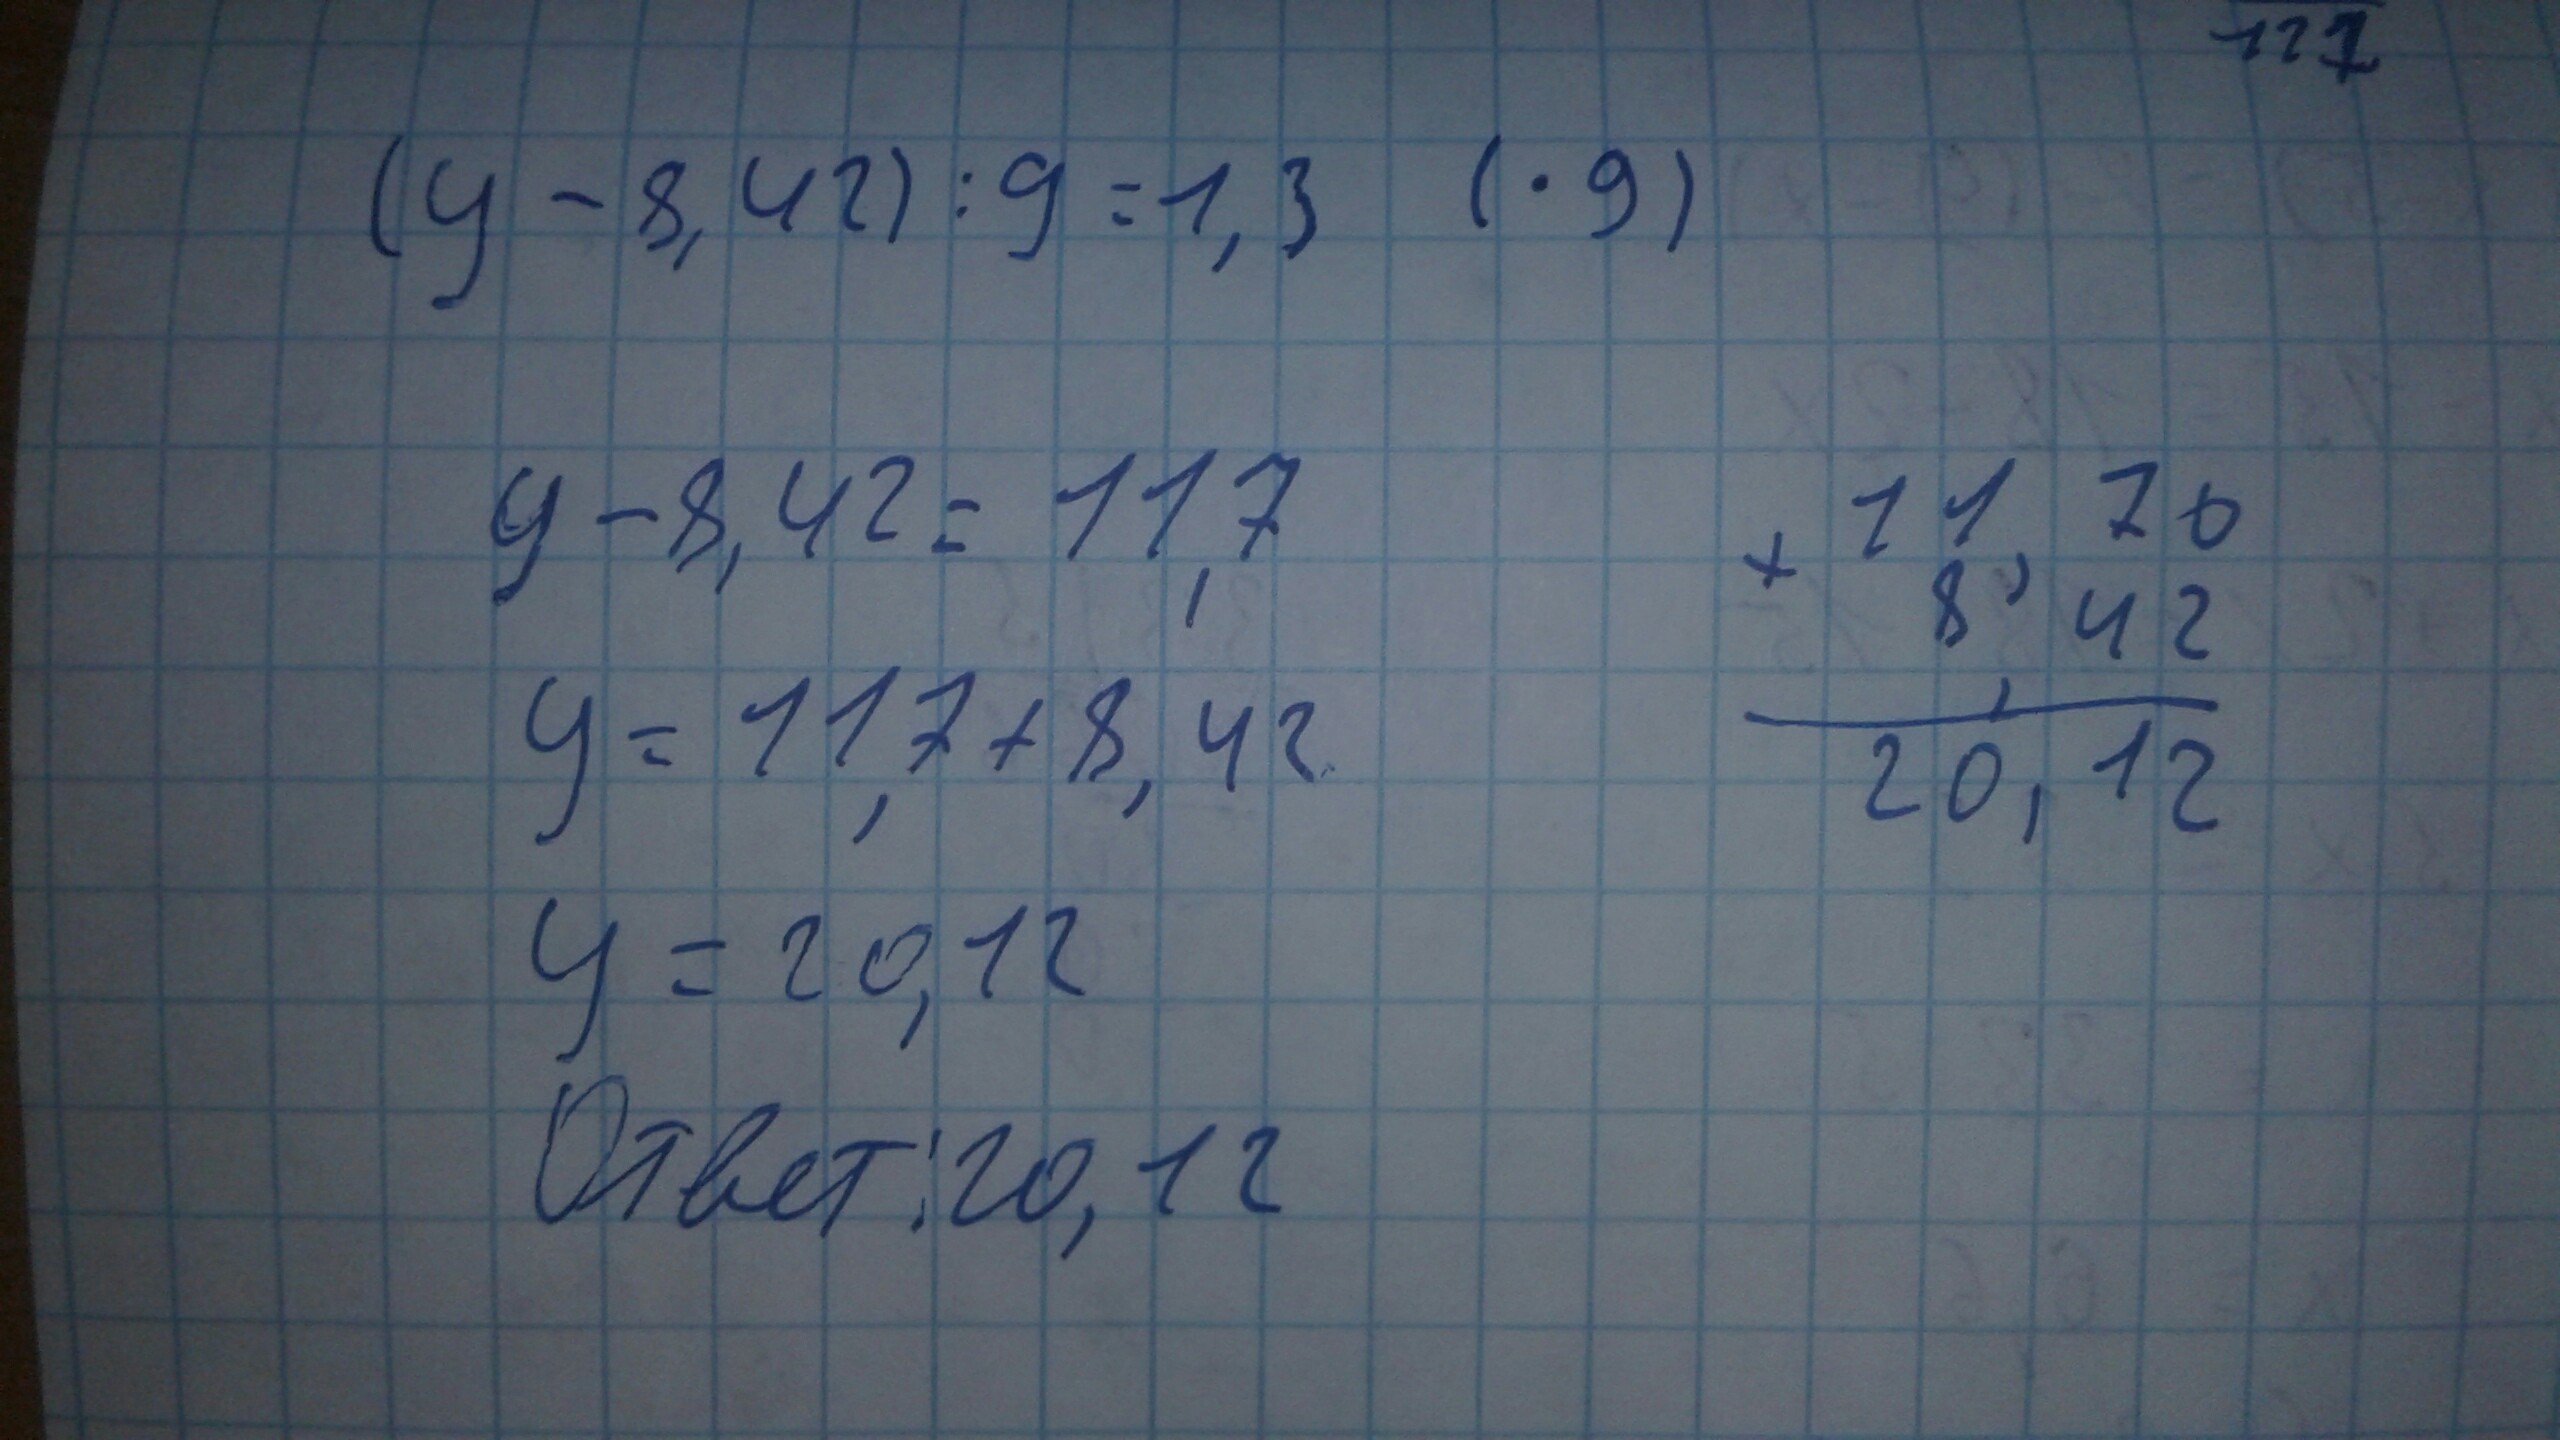 127
(y - 8,42) : 9 = 1,3 (· 9)
y - 8,42 = 11,7
y = 11,7 + 8,42
y = 20,12
Ответ: 20,12
+ 11,70
8,42
20,12